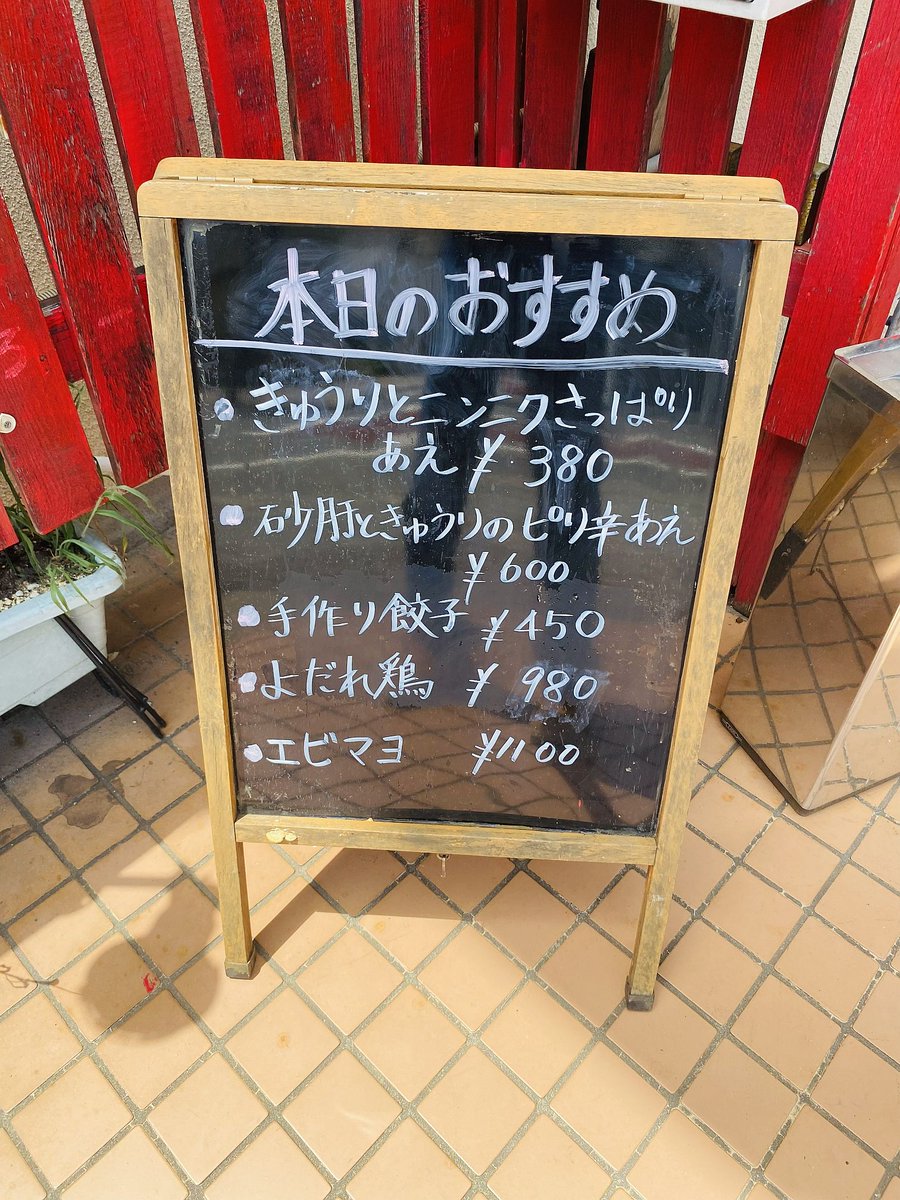 本日のおすすめ
• きゅうりとニンニクさっぱり
あえ ¥380
• 砂肝ときゅうりのピリ辛あえ
¥600
• 手作り餃子 ¥450
• よだれ鶏 ¥980
• エビマヨ ¥1100